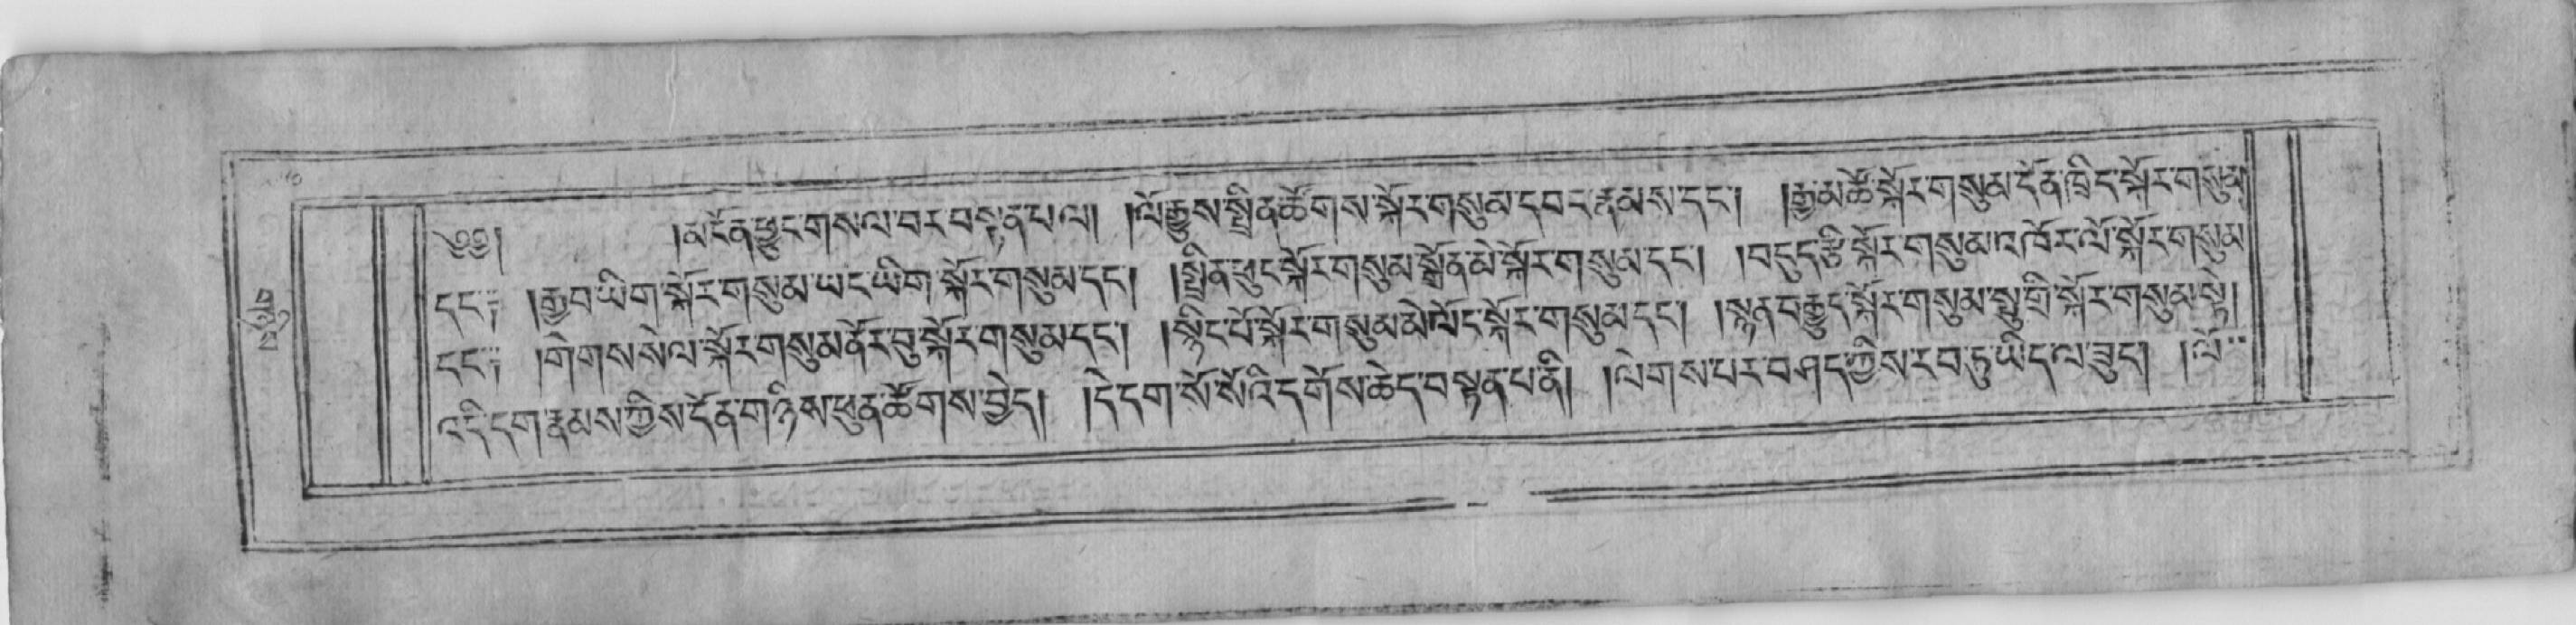 ༄༅། །མངོན་ཕྱུང་གསལ་བར་བསྟན་པ་ལ། །ལོ་རྒྱུས་སྤྲིན་ཚོགས་སྐོར་གསུམ་དབང་རྣམས་དང་། །རྒྱ་མཚོ་སྐོར་གསུམ་དོན་ཁྲིད་སྐོར་གསུམ།
དང་༔ །རྒྱབ་ཡིག་སྐོར་གསུམ་ཡང་ཡིག་སྐོར་གསུམ་དང་། །སྤྲིན་ཕུང་སྐོར་གསུམ་སྒྲོན་མེ་སྐོར་གསུམ་དང་། །བདུད་རྩི་སྐོར་གསུམ་འཁོར་ལོ་སྐོར་གསུམ
དང་༔ །གེགས་སེལ་སྐོར་གསུམ་ནོར་བུ་སྐོར་གསུམ་དང་། །སྙིང་པོ་སྐོར་གསུམ་མེ་ལོང་སྐོར་གསུམ་དང་། །སྙན་བརྒྱུད་སྐོར་གསུམ་སྤུ་གྲི་སྐོར་གསུམ་སྟེ།
འདི་དག་རྣམས་ཀྱིས་དོན་གཉིས་ཕུན་ཚོགས་བྱེད། །དེ་དག་སོ་སོའི་དགོས་ཆེད་བསྟན་པ་ནི། །ལེགས་པར་བཤད་ཀྱིས་རབ་ཏུ་ཡིད་ལ་ཟུད། །ལོ་